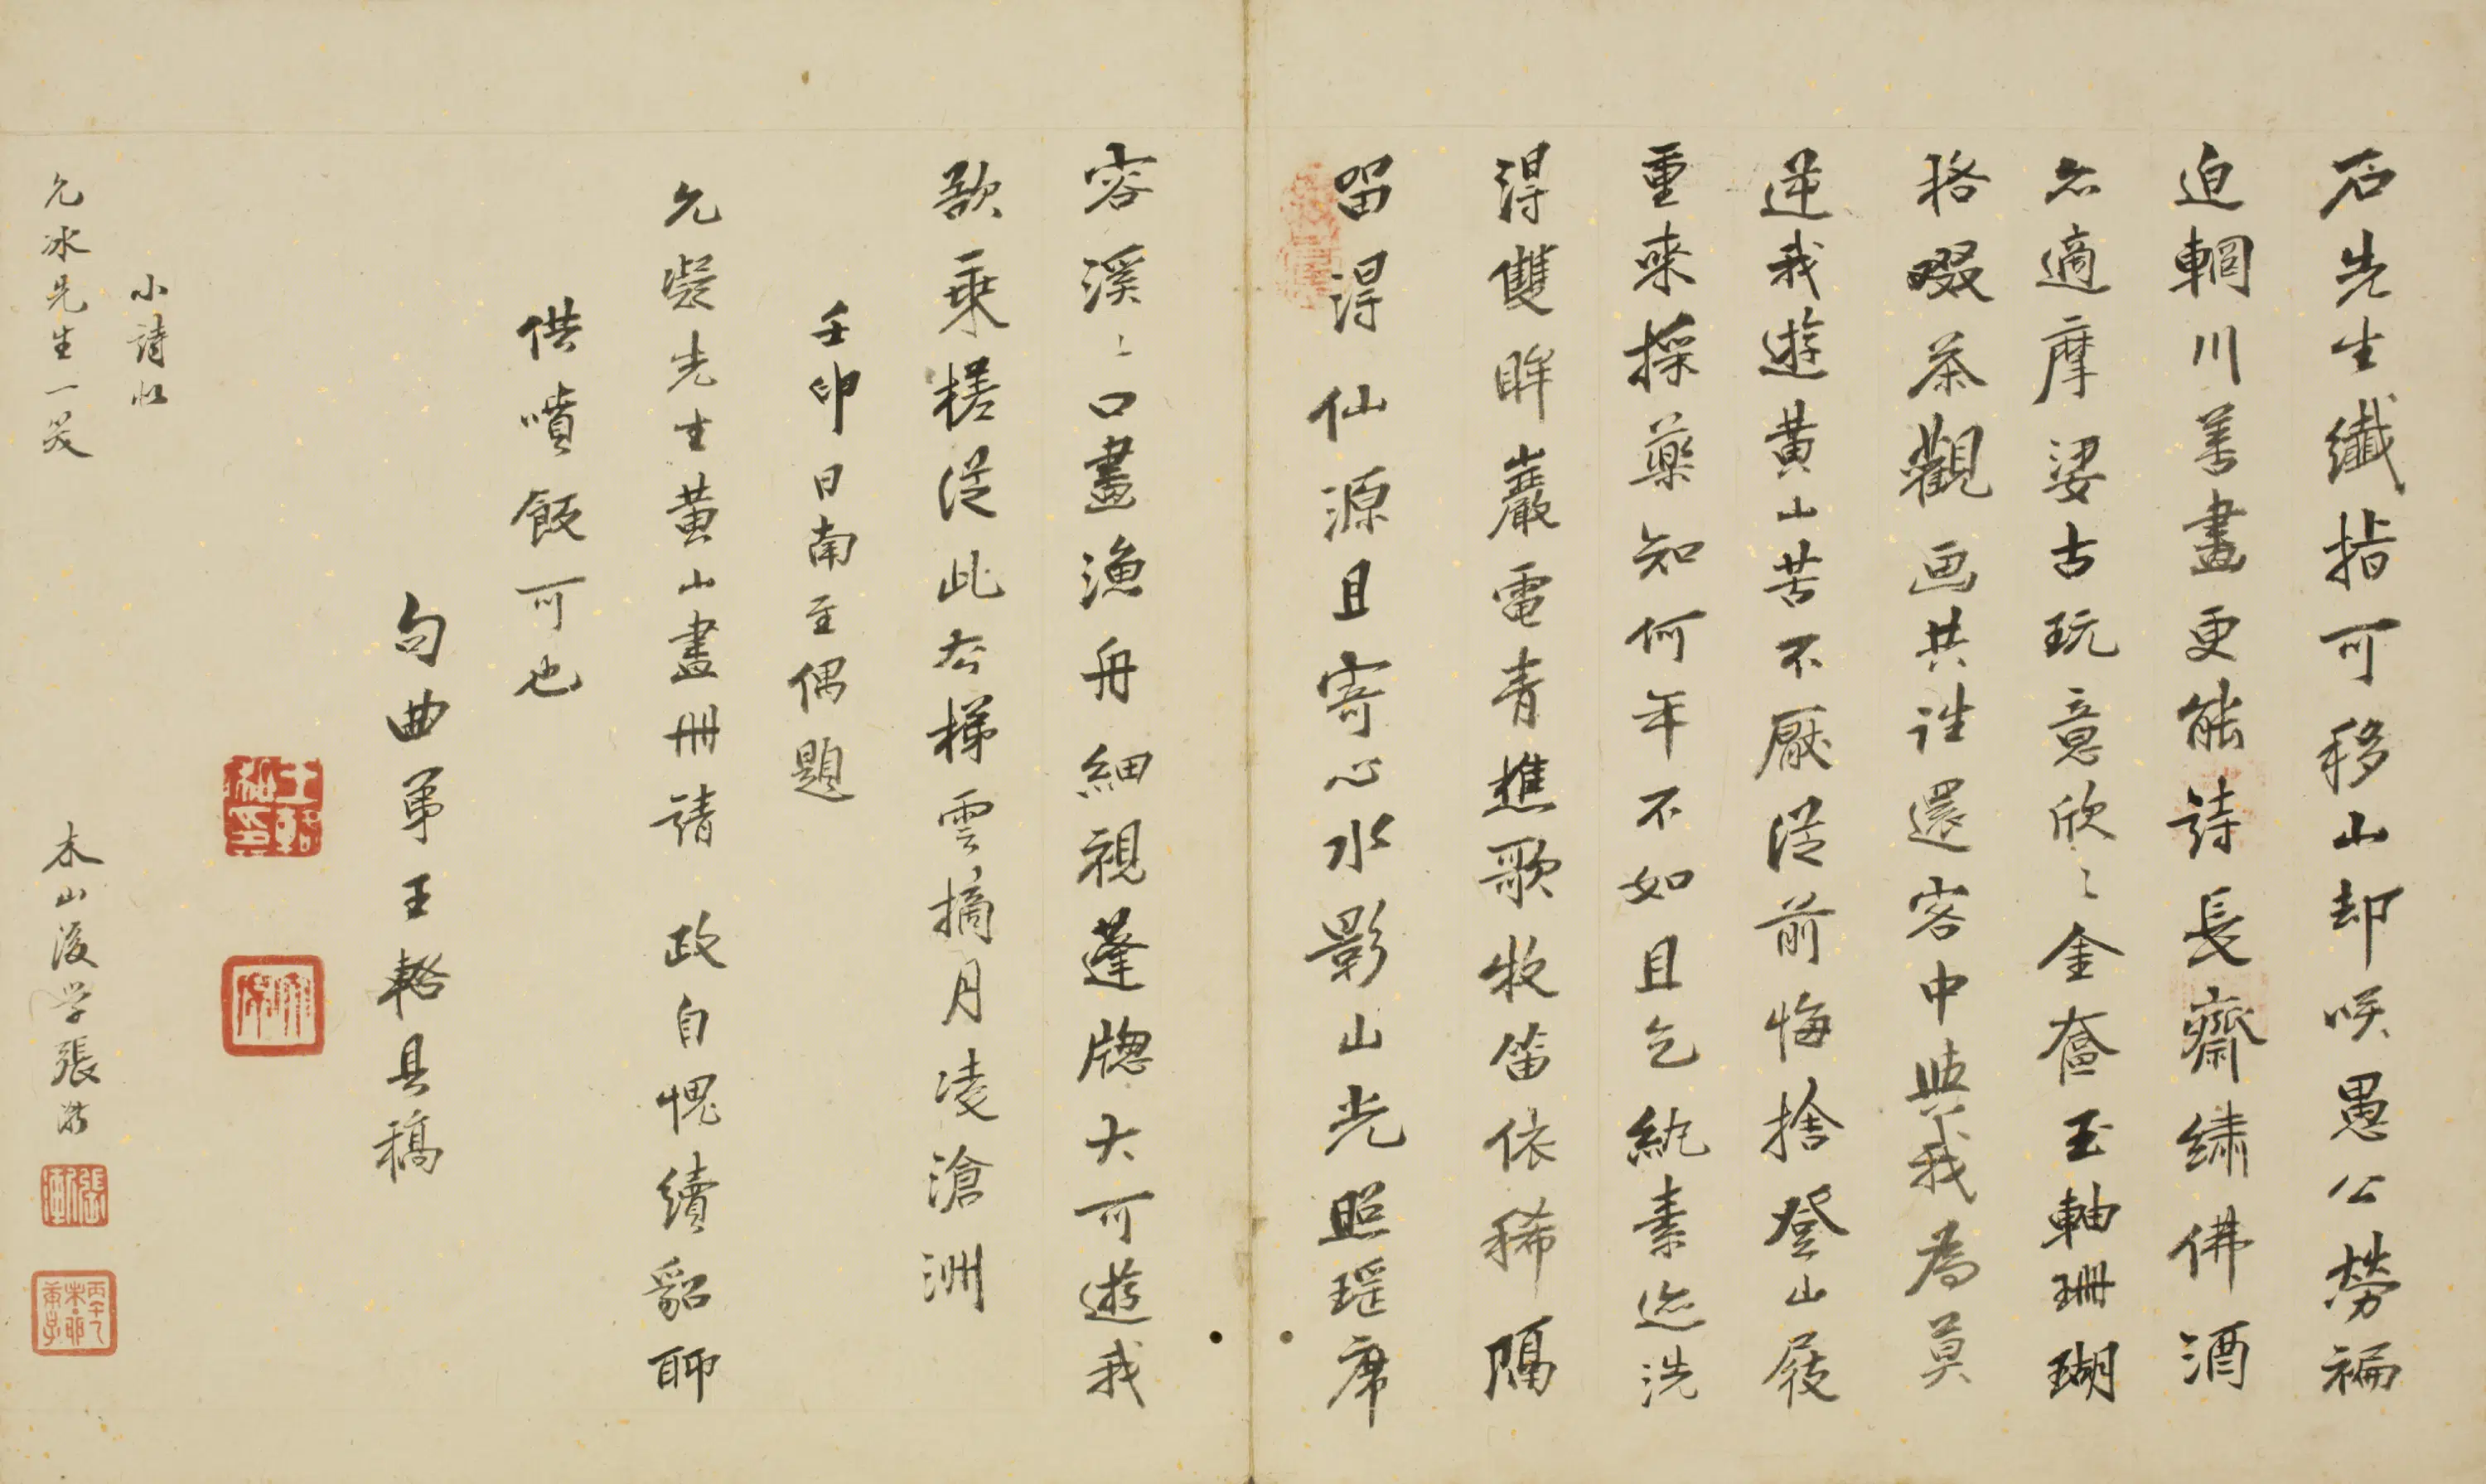 石先生纖指可移山却咲愚公勞褊
迫輞川善畫更能詩長齋繡佛酒
名適摩挲古玩意欣〻金奩玉軸珊瑚
格啜茶觀画共誰還客中典我為莫
逆我遊黃山苦不厭從前悔捨登山屐
重來採藥知何年不如且乞紈素迹洗
得雙眸巖電青樵歌牧笛依稀隔
留得仙源且寄心水影山光照瑤席
容溪〻口畫漁舟細視蓬牕大可遊我
欲乘槎從此去梯雲摘月凌滄洲
壬卯日南至偶題
允凝先生黃山畫冊請 政自愧續貂聊
供噴飯可也
句曲弟王輅具稿
小詩似
允冰先生一笑
木山後学張